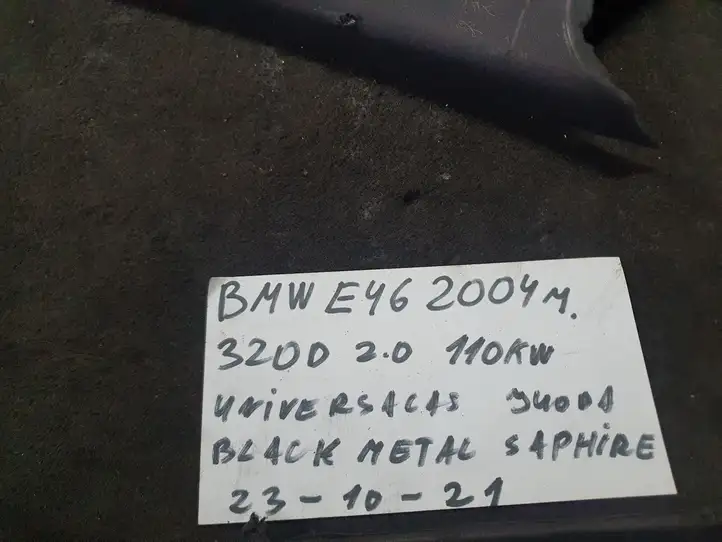 BMW E46 2004 M.
320D 2.0 110KW
UNIVERSALAS JUODA
BLACK METAL SAPHIRE
23-10-21